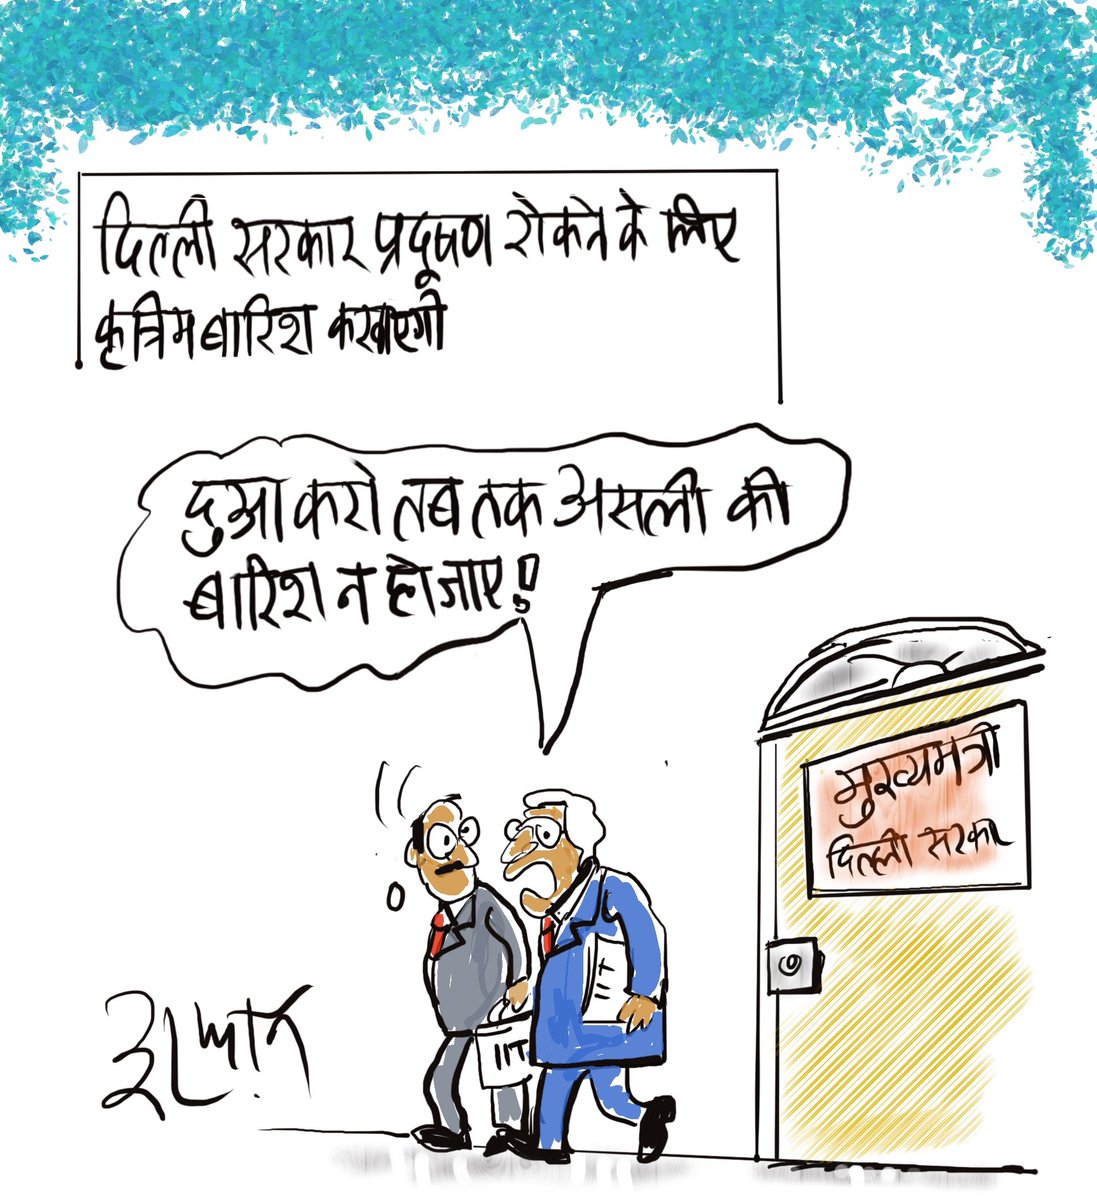 दिल्ली सरकार प्रदूषण रोकने के लिए
कृत्रिम बारिश करवाएगी
दुआ करो तब तक असली की
बारिश न हो जाए!
मुख्यमंत्री
दिल्ली सरकार
IIT
IIT
इरफान